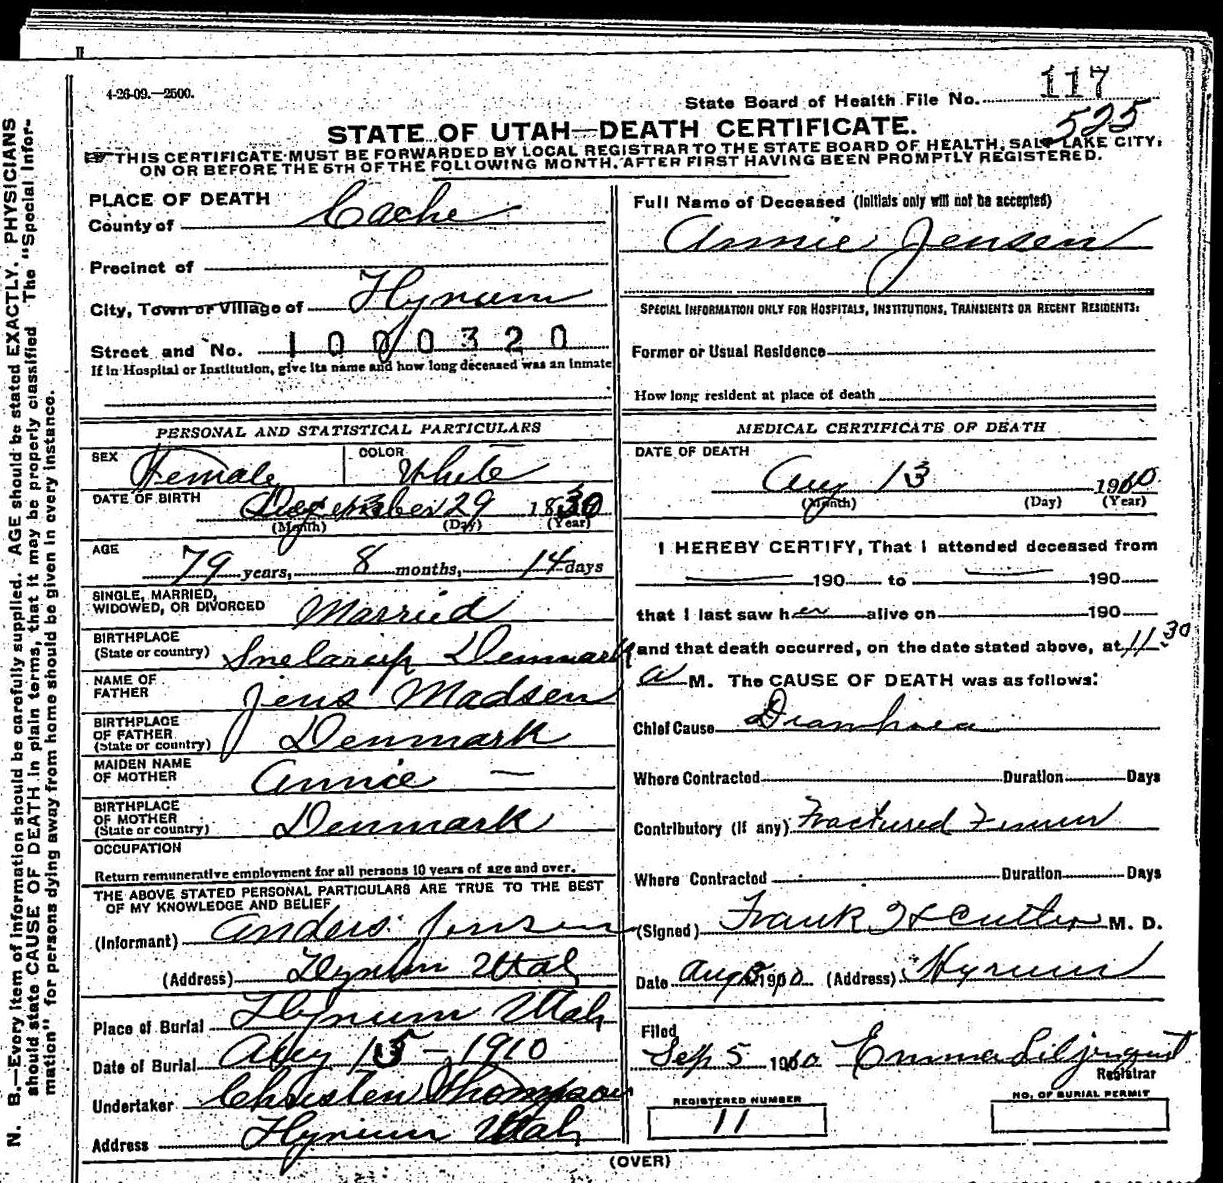 4-26-09.—2500.
State Board of Health File No. 117
525
STATE OF UTAH—DEATH CERTIFICATE.
THIS CERTIFICATE MUST BE FORWARDED BY LOCAL REGISTRAR TO THE STATE BOARD OF HEALTH, SALT LAKE CITY,
ON OR BEFORE THE 5TH OF THE FOLLOWING MONTH, AFTER FIRST HAVING BEEN PROMPTLY REGISTERED.
PLACE OF DEATH
County of Cache
Precinct of
City, Town or Village of Hyrum
Street and No. 1000320
If in Hospital or Institution, give its name and how long deceased was an inmate
Full Name of Deceased (Initials only will not be accepted)
Annie Jensen
SPECIAL INFORMATION ONLY FOR HOSPITALS, INSTITUTIONS, TRANSIENTS OR RECENT RESIDENTS:
Former or Usual Residence
How long resident at place of death
PERSONAL AND STATISTICAL PARTICULARS
SEX Female COLOR White
DATE OF BIRTH 29 1830
(Month) (Day) (Year)
AGE
79 years, 8 months, 14 days
SINGLE, MARRIED,
WIDOWED, OR DIVORCED Married
BIRTHPLACE
(State or country) Snelarup Denmark
NAME OF
FATHER Jens Madsen
BIRTHPLACE
OF FATHER
(State or country) Denmark
MAIDEN NAME
OF MOTHER Annie —
BIRTHPLACE
OF MOTHER
(State or country) Denmark
OCCUPATION
Return remunerative employment for all persons 10 years of age and over.
THE ABOVE STATED PERSONAL PARTICULARS ARE TRUE TO THE BEST
OF MY KNOWLEDGE AND BELIEF
(Informant) Anders Jensen
(Address) Hyrum Utah
Place of Burial Hyrum Utah
Date of Burial Aug 15 - 1910
Undertaker Christen Thompson
Address Hyrum Utah
MEDICAL CERTIFICATE OF DEATH
DATE OF DEATH
Aug 13 1910
(Month) (Day) (Year)
I HEREBY CERTIFY, That I attended deceased from
190 to 190
that I last saw her alive on 190
and that death occurred, on the date stated above, at 11 30
a M. The CAUSE OF DEATH was as follows:
Chief Cause Diarrhoea
Where Contracted Duration Days
Contributory (if any) Fractured Femur
Where Contracted Duration Days
(Signed) Frank H Cutler M. D.
Date Aug 1910 (Address) Hyrum
Filed
Sep 5 1910 Emma Liljenquist
Registrar
REGISTERED NUMBER
11
NO. OF BURIAL PERMIT
(OVER)
N. B.—Every item of information should be carefully supplied. AGE should be stated EXACTLY. PHYSICIANS
should state CAUSE OF DEATH in plain terms, that it may be properly classified. The "Special Infor-
mation" for persons dying away from home should be given in every instance.